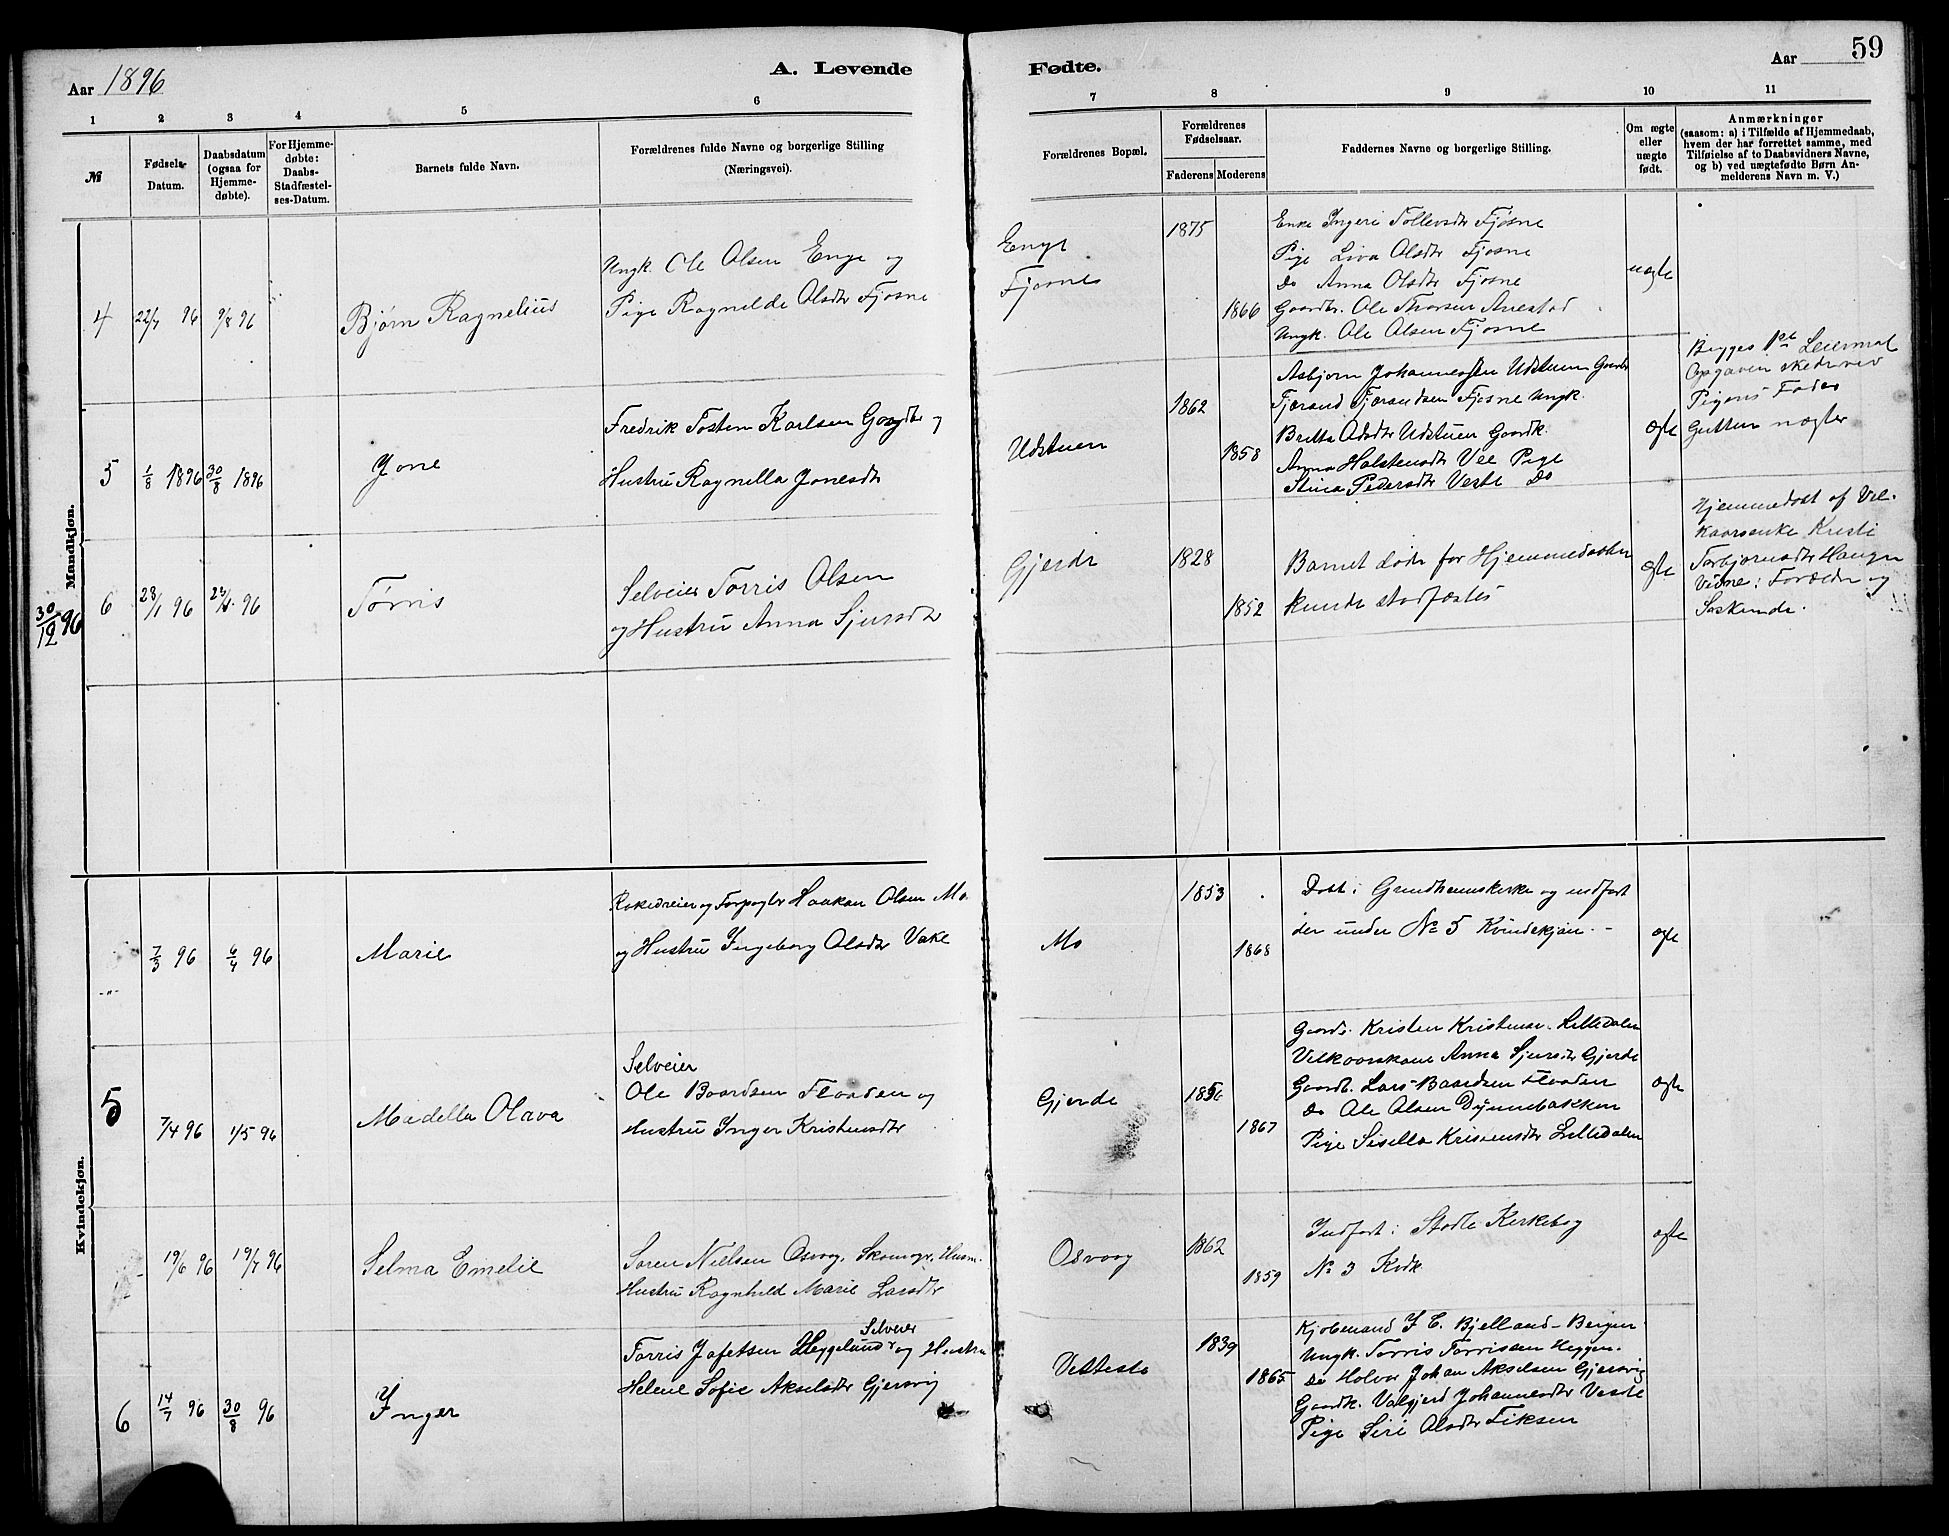 Aar 1896
A. Levende
Fødte.
Aar
59
1 2 3 4 5 6 7 8 9 10 11
№
Fødsels-
Datum.
Daabsdatum
(ogsaa for
Hjemme-
døbte).
For Hjemme-
døbte:
Daabs-
Stadfæstel-
ses-Datum.
Barnets fulde Navn.
Forældrenes fulde Navne og borgerlige Stilling
(Næringsvei).
Forældrenes Bopæl.
Forældrenes
Fødselsaar.
Faderens Moderens
Faddernes Navne og borgerlige Stilling.
Om ægte
eller
uægte
født.
Anmærkninger
(saasom: a) i Tilfælde af Hjemmedaab,
hvem der har forrettet samme, med
Tilføielse af to Daabsvidners Navne,
og b) ved uægtefødte Børn An-
melderens Navn m. V.)
Mandkjøn.
4
22/7 96
9/8 96
Bjørn Ragnelius
Ungk. Ole Olsen Enge og
Pige Ragnelde Olsdtr Fjosne
Enge
Fjosne
1875
1866
Enke Ingeri Tollevsdtr Fjosne
Pige Liva Olsdtr Fjosne
Do Anna Olsdtr Fjosne
Gaardbr. Ole Thorsen Anestad
Ungk. Ole Olsen Fjosne
uægte
Begges 1ste Leiermal
Opgaven skedr ved
Pigens Fader
Gutten nægter
5
1/8 1896
30/8 1896
Jone
Fredrik Tosten Karlsen Gaardbr og
Hustru Ragnella Jonesdtr
Udstuen
1862
1858
Asbjorn Johannessen Udstuen Gaardbr
Tjerand Tjerandsen Fjosne Ungk.
Britta Olsdtr Udstuen Gaardk.
Anna Halstensdtr Vee Pige
Stina Pedersdtr Veste Do
ægte
30/12 96
6
28/1 96
96
Tørris
Selveier Torris Olsen
og Hustru Anna Sjursdtr
Gjerde
1828
1852
Barnet døde før Hjemmedaaben
kunde stadfæstes
ægte
Hjemmedøbt af Vil-
kaarsenke Kristi
Torbjørnsdtr Haugen
Vidne: Forældre og
Søskende.
Kvindekjøn.
-"-
7/3 96
6/4 96
Marie
og Forpagter Haakon Olsen Mo
og Hustru Ingeborg Olsdtr Vake
Mo
1853
1868
Døbt i Grindheimskirke og indført
der under № 5 Kvindekjøn. -
ægte
5
7/4 96
1/5 96
Madella Olava
Selveier
Ole Baardsen Flaaden og
Hustru Inger Kristensdtr
Gjerde
1856
1867
Gaardb. Kristen Kristense. Lilledalen
Vilkaarskone Anna Sjursdtr Gjerde
Gaardb. Lars Baardsen Flaaden
Do Ole Olsen Dynnebakken
Pige Sisella Kristensdtr Lilledalen
ægte
19/6 96
19/7 96
Selma Emelie
Søren Nielsen Osvog, Skomager, Husm.
Hustru Ragnhild Marie Larsdtr
Osvaag
1862
1859
Indført i Stødle Kirkebog
№ 3 Kvdk
ægte
6
14/7 96
30/8 96
Inger
Selveier
Torris Jofetsen Heggelund og Hustru
Helene Sofie Akselsdtr Gjersvig
Vetteste
1839
1865
Kjøbmand J. C. Bjelland - Bergen
Ungk. Torris Torrissen Heggen.
Do Holvor Johan Akselsen Gjersvig
Gaardk. Valgjerd Johannesdtr Veste
Pige Siri Olsdtr Fiksen